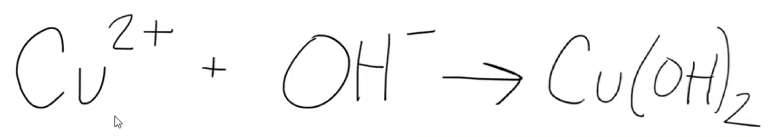 Cu²⁺ + OH⁻ → Cu(OH)₂